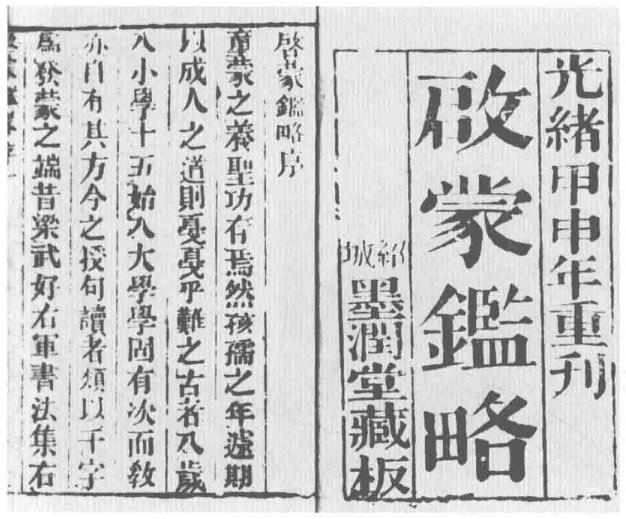 光緒甲申年重刊
啟蒙鑑略
紹城
墨潤堂藏板
啓蒙鑑略序
童蒙之養聖功有焉然孩孺之年遽期
以成人之道則戞戞乎難之古者八歲
入小學十五始入大學學固有次而敎
亦自有其方今之授句讀者類以千字
爲發蒙之端昔梁武好右軍書法集右